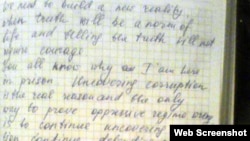 we need to build a new reality
when truth will be a norm of
life and telling the truth will not
mean courage
You all know why am I am here
in prison Uncovering corruption
is the real reason and the only
way to prove oppressive regime wrong
is to continue uncovering
Web Screenshot